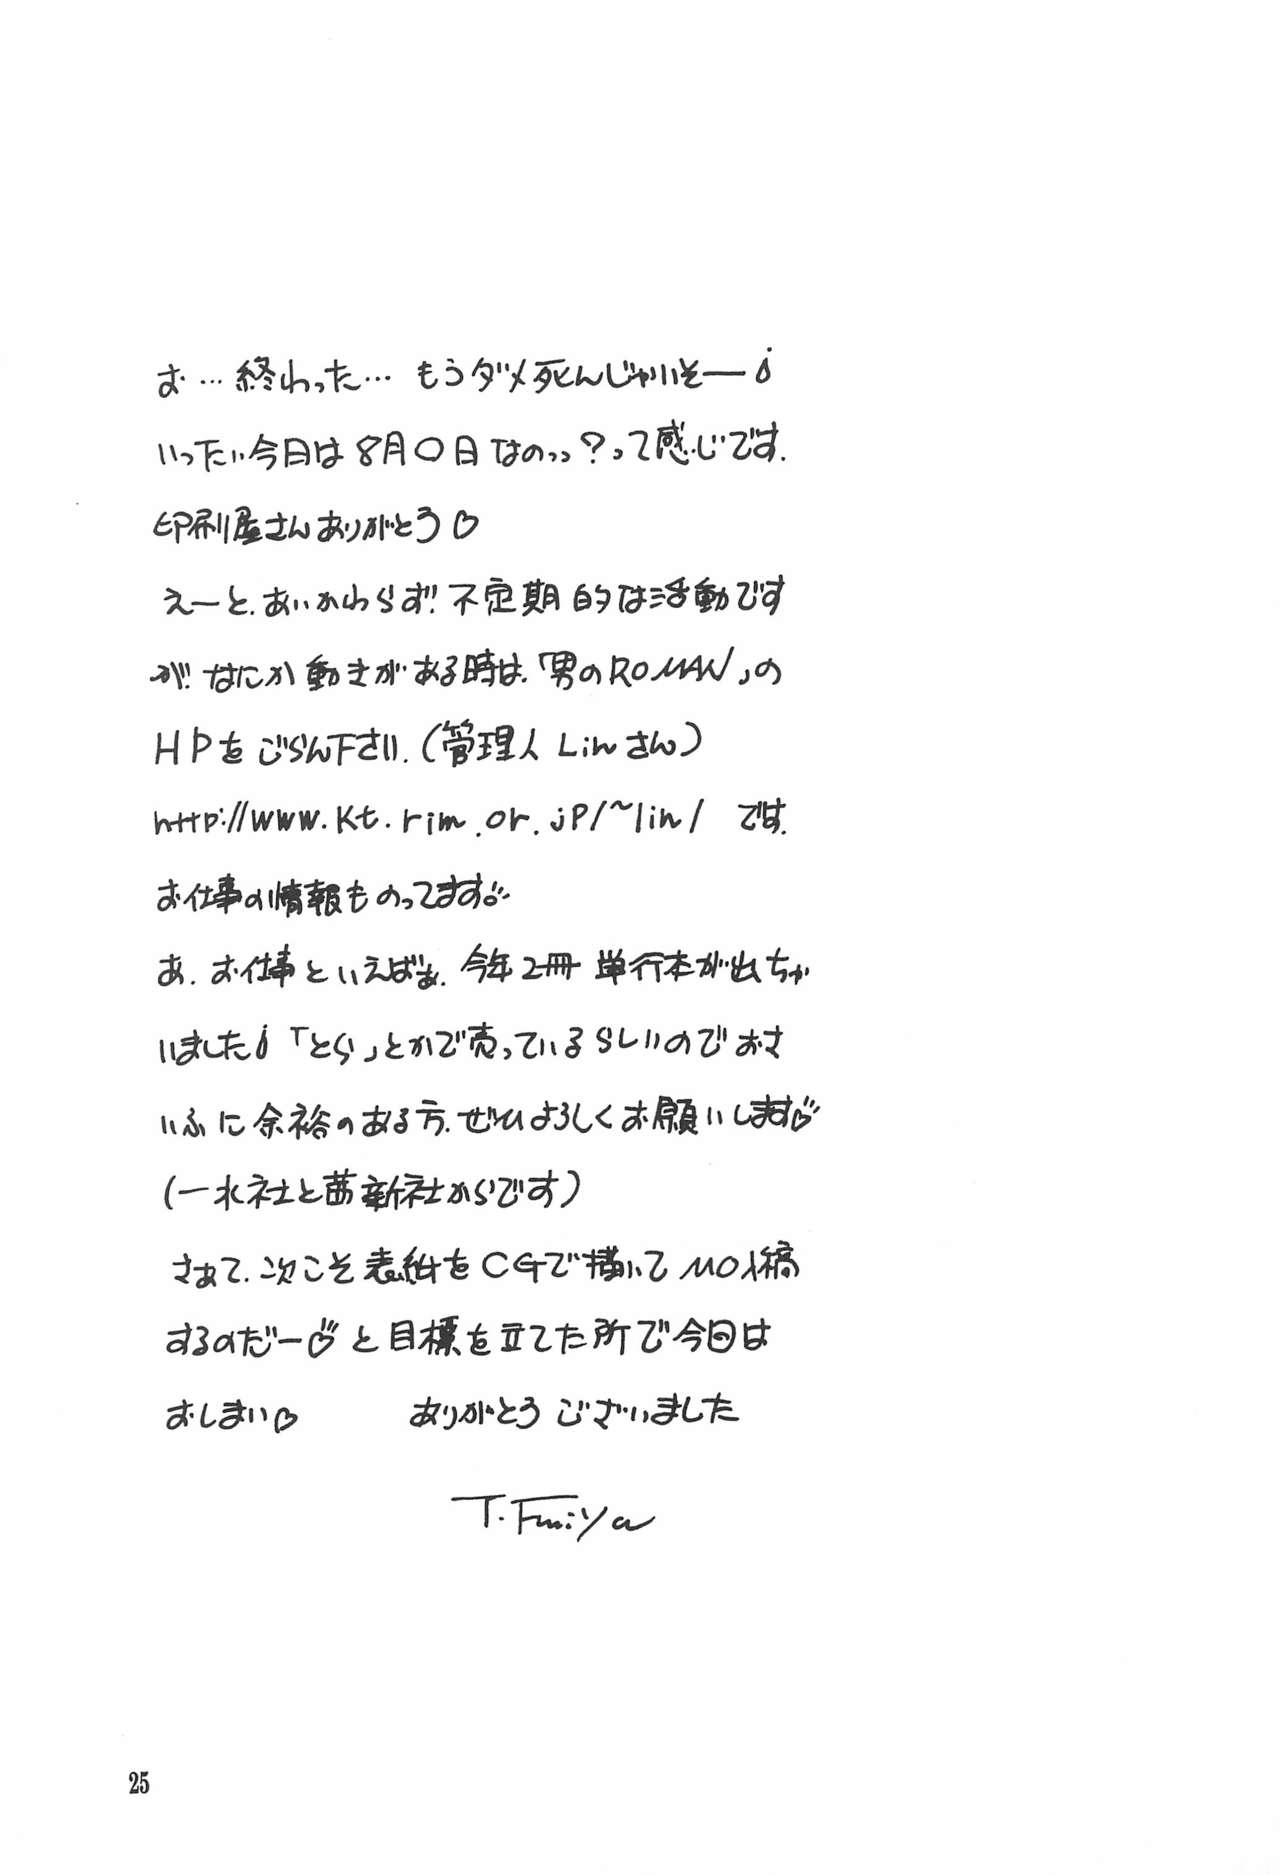 お…終わった… もうダメ死んじゃいそー
いったい今日は8月〇日なのっっ?って感じです.
印刷屋さんありがとう♡
えーと、あいかわらず!不定期的な活動です
が!なにか動きがある時は、「男のROMAN」の
HPをごらん下さい.(管理人Linさん)
http://www.kt.rim.or.jp/~lin/ です.
お仕事の情報ものってます
あ、お仕事といえばぁ、今年2冊 単行本が出ちゃ
いました 「とら」とかで売っているらしいのでおさ
いふに余裕のある方、ぜひよろしくお願いします♡
(一水社と茜新社からです)
さぁて、次こそ表紙をCGで描いてMO入稿
するのだー♡と目標を立てた所で今日は
おしまい♡ ありがとうございました
T.Fujiya
25